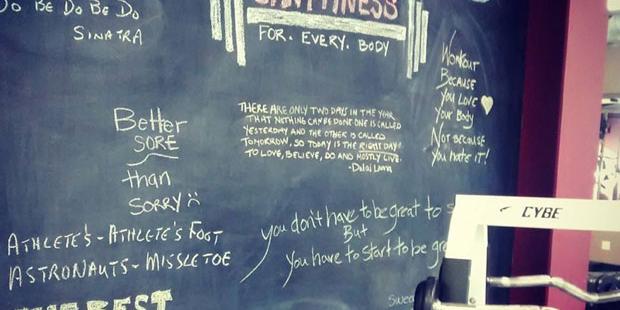 DO BE DO BE DO
SINATRA
FITNESS
FOR. EVERY. BODY
WORKOUT
BECAUSE
YOU LOVE
YOUR BODY
NOT BECAUSE
YOU HATE IT!
THERE ARE ONLY TWO DAYS IN THE YEAR
THAT NOTHING CAN BE DONE ONE IS CALLED
YESTERDAY AND THE OTHER IS CALLED
TOMORROW, SO TODAY IS THE RIGHT DAY
TO LOVE, BELIEVE, DO AND MOSTLY LIVE.
-Dalai Lama
Better
SORE
than
SORRY
ATHLETE'S - ATHLETE'S FOOT
ASTRONAUTS - MISSLETOE
you don't have to be great to s
But
you have to start to be gre
CYBEX
THE BEST
Swea